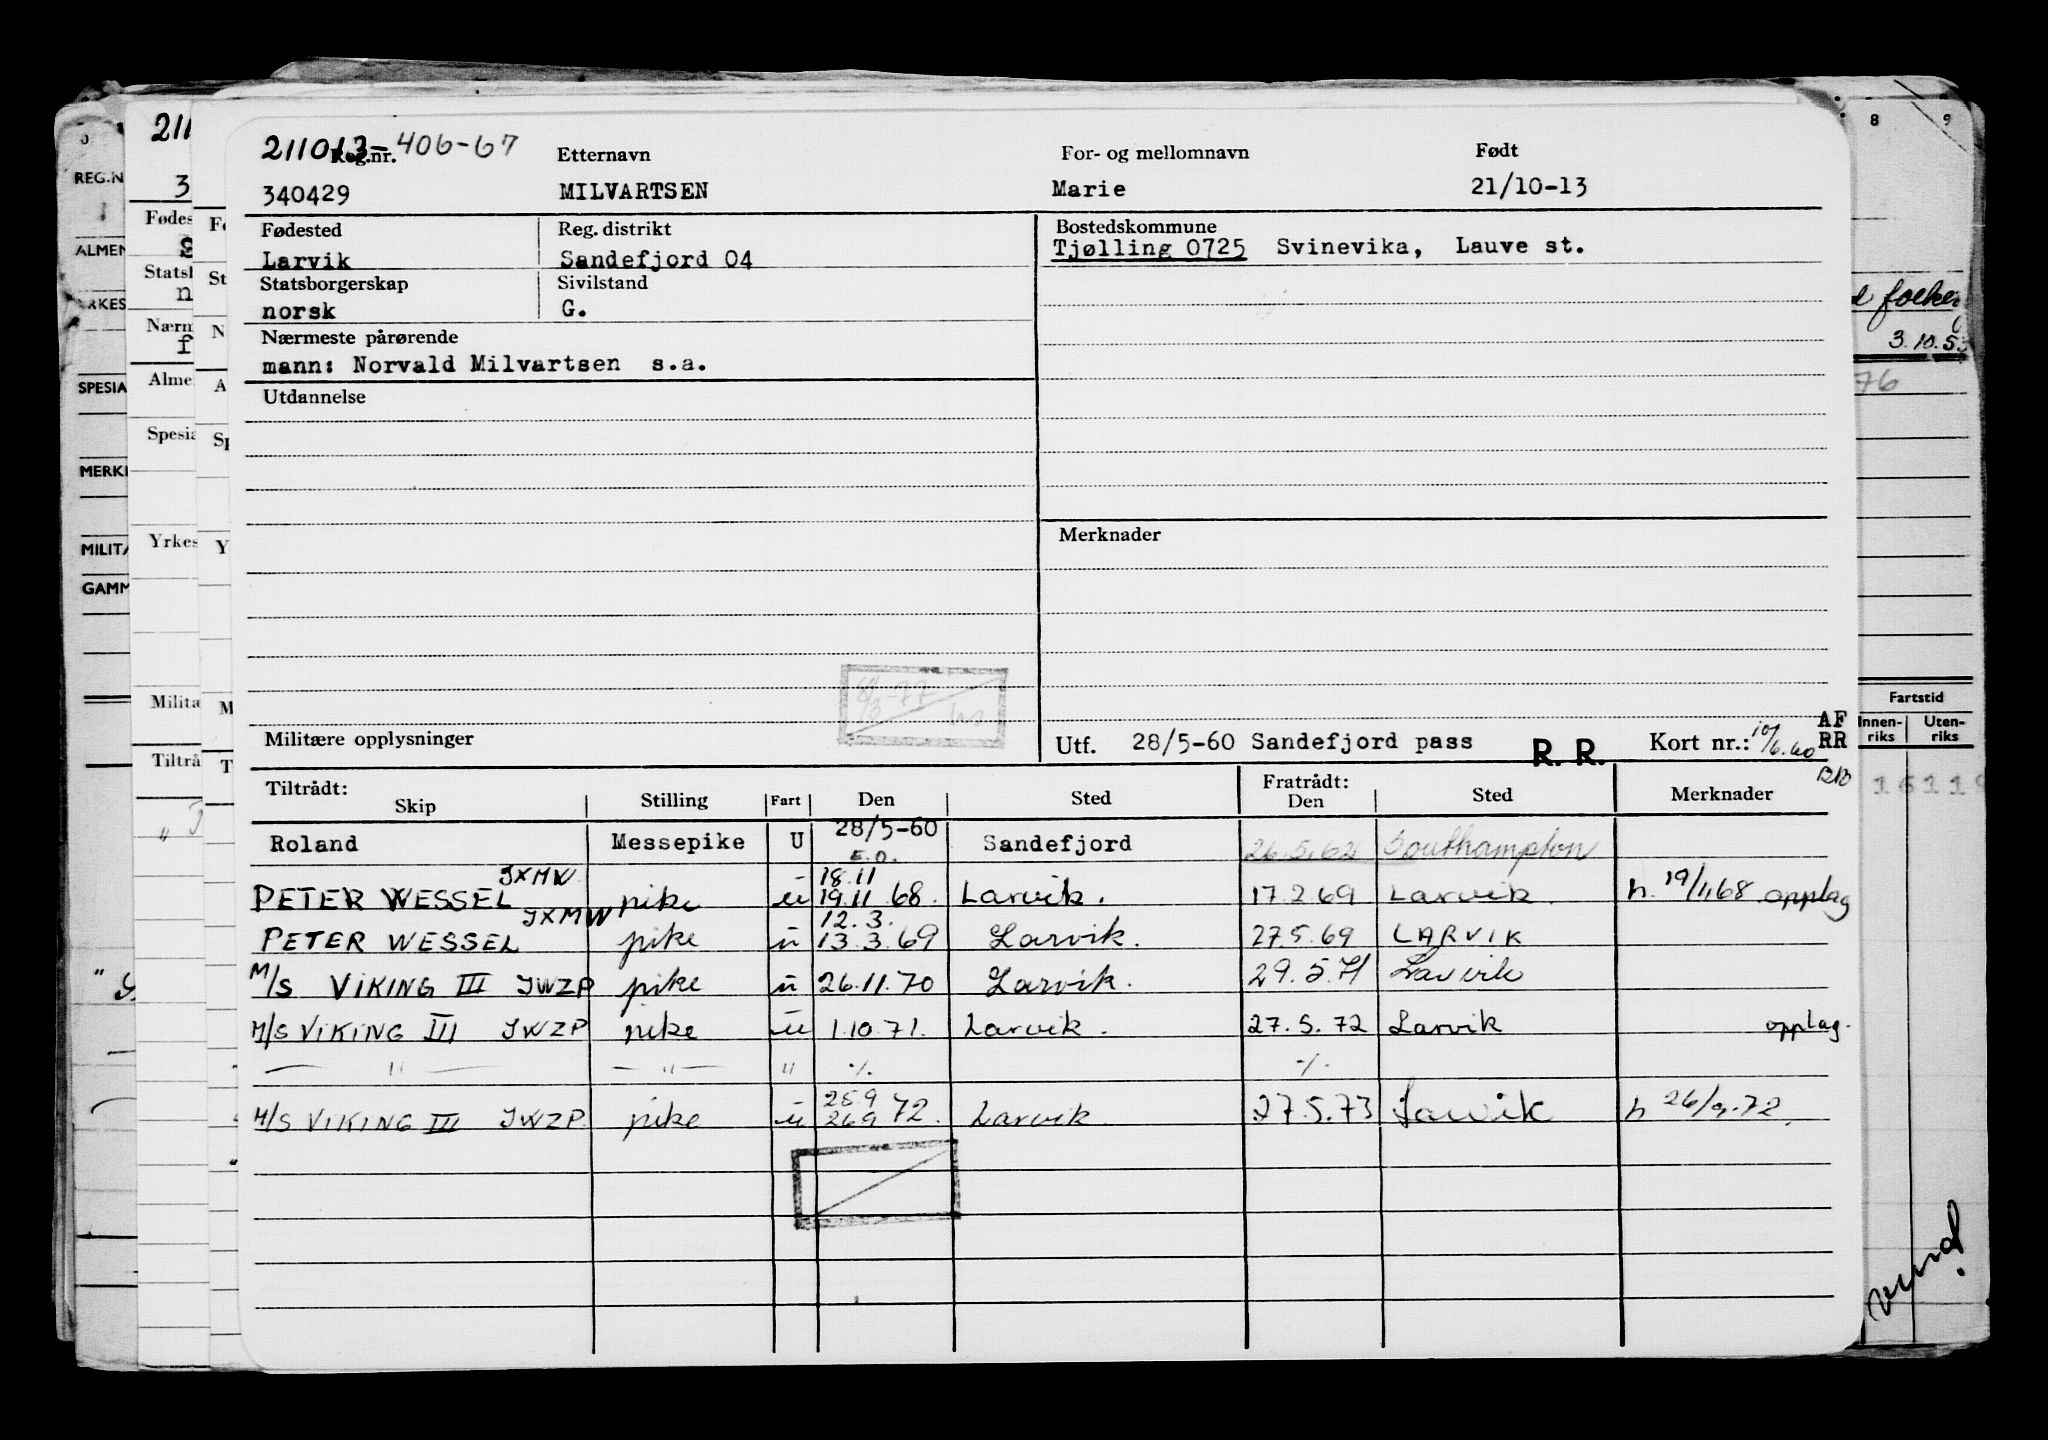 211013-406-67
Reg.nr. Etternavn For- og mellomnavn Født
340429 MILVARTSEN Marie 21/10-13
Fødested Reg. distrikt Bostedskommune
Larvik Sandefjord 04 Tjølling 0725 Svinevika, Lauve st.
Statsborgerskap Sivilstand
norsk G.
Nærmeste pårørende
mann: Norvald Milvartsen s.a.
Utdannelse
Merknader
Militære opplysninger
Utf. 28/5-60 Sandefjord pass R. R. Kort nr.: 10/6.60 AF RR
Tiltrådt: Fratrådt:
Skip Stilling Fart Den Sted Den Sted Merknader
Roland Messepike U 28/5-60 E.O. Sandefjord 26.5.62 Southampton
PETER WESSEL JXMW pike u 18.11 19.11 68. Larvik. 17.2 69 Larvik. h. 19/11 68 opplag
PETER WESSEL JXMW pike u 12.3. 13.3.69 Larvik. 27.5.69 LARVIK
M/S VIKING III JWZP pike u 26.11.70 Larvik. 29.5.71 Larvik
M/S VIKING III JWZP pike u 1.10.71. Larvik. 27.5.72 Larvik opplag.
— " — — " — " -/. -/.
M/S VIKING III JWZP pike u 25.9 26.9 72. Larvik 27.5.73 Larvik h 26/9.72.
REG.N
ALMEN
SPESIA
MERK
MILITÆ
GAMM
Fødes
Nærm
Alme
Spesia
Yrkes
Militæ
Tiltrå
8 9
3.10.53
76
Fartstid
Innen-riks Uten-riks